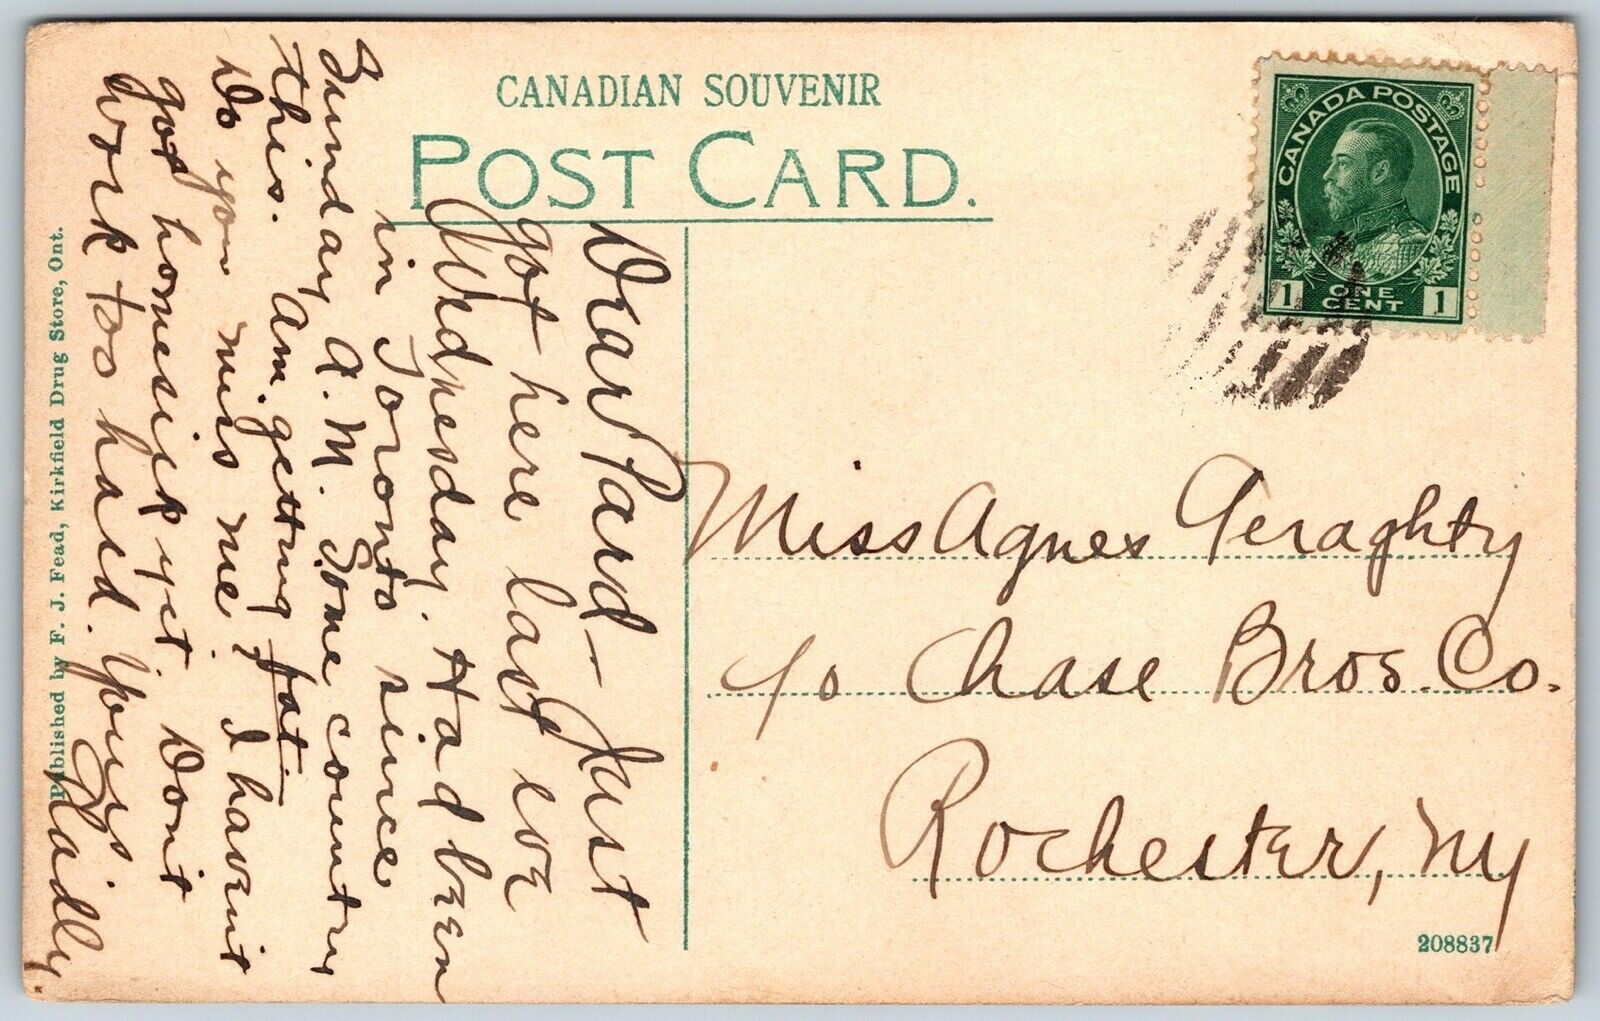 CANADIAN SOUVENIR
POST CARD.
CANADA POSTAGE
1 ONE CENT 1
Dear Pard – Just
got here last eve
Wednesday. Had been
in Toronto since
Sunday A.M. Some country
this. Am getting fat.
Do you miss me? I havent
got homesick yet. Don't
work too hard. Yours
Gladly.
Miss Agnes Geraghty
c/o Chase Bros. Co.
Rochester, NY
Published by F. J. Fead, Kirkfield Drug Store, Ont.
208837